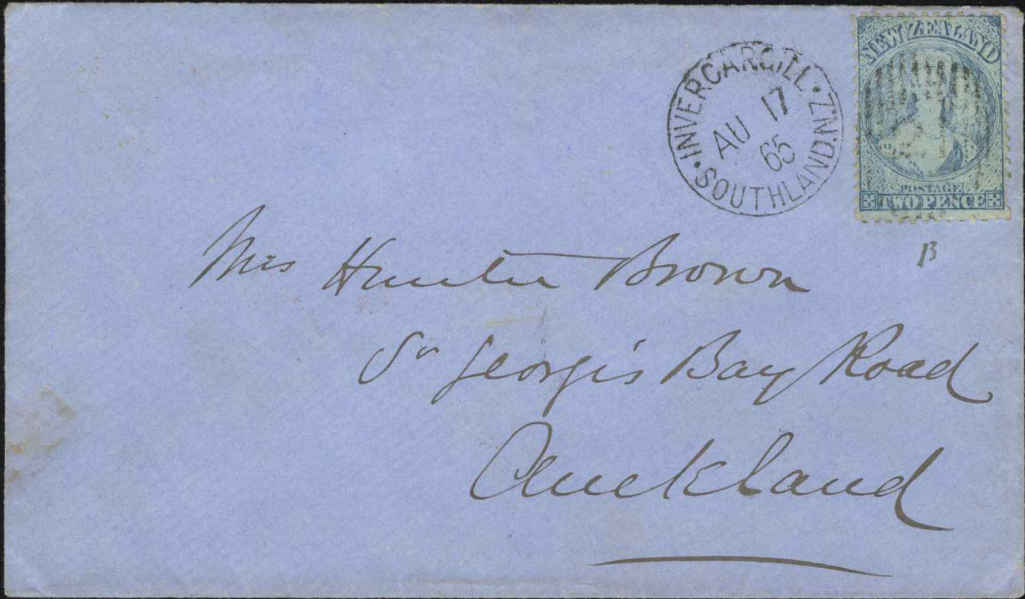 INVERCARGILL
AU 17
65
SOUTHLAND.N.Z.
NEW ZEALAND
POSTAGE
TWO PENCE
B
Mrs Hunter Brown
St Georges Bay Road
Auckland